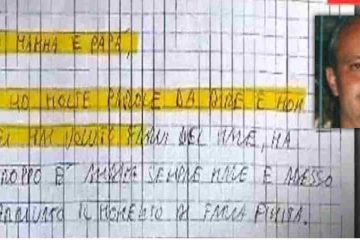 MAMMA E PAPÀ,
HO MOLTE PAROLE DA DIRE E NON
VOLUTO FARVI DEL MALE, MA
È ANDATA SEMPRE MALE E ADESSO
IL MOMENTO DI FARLA FINITA.